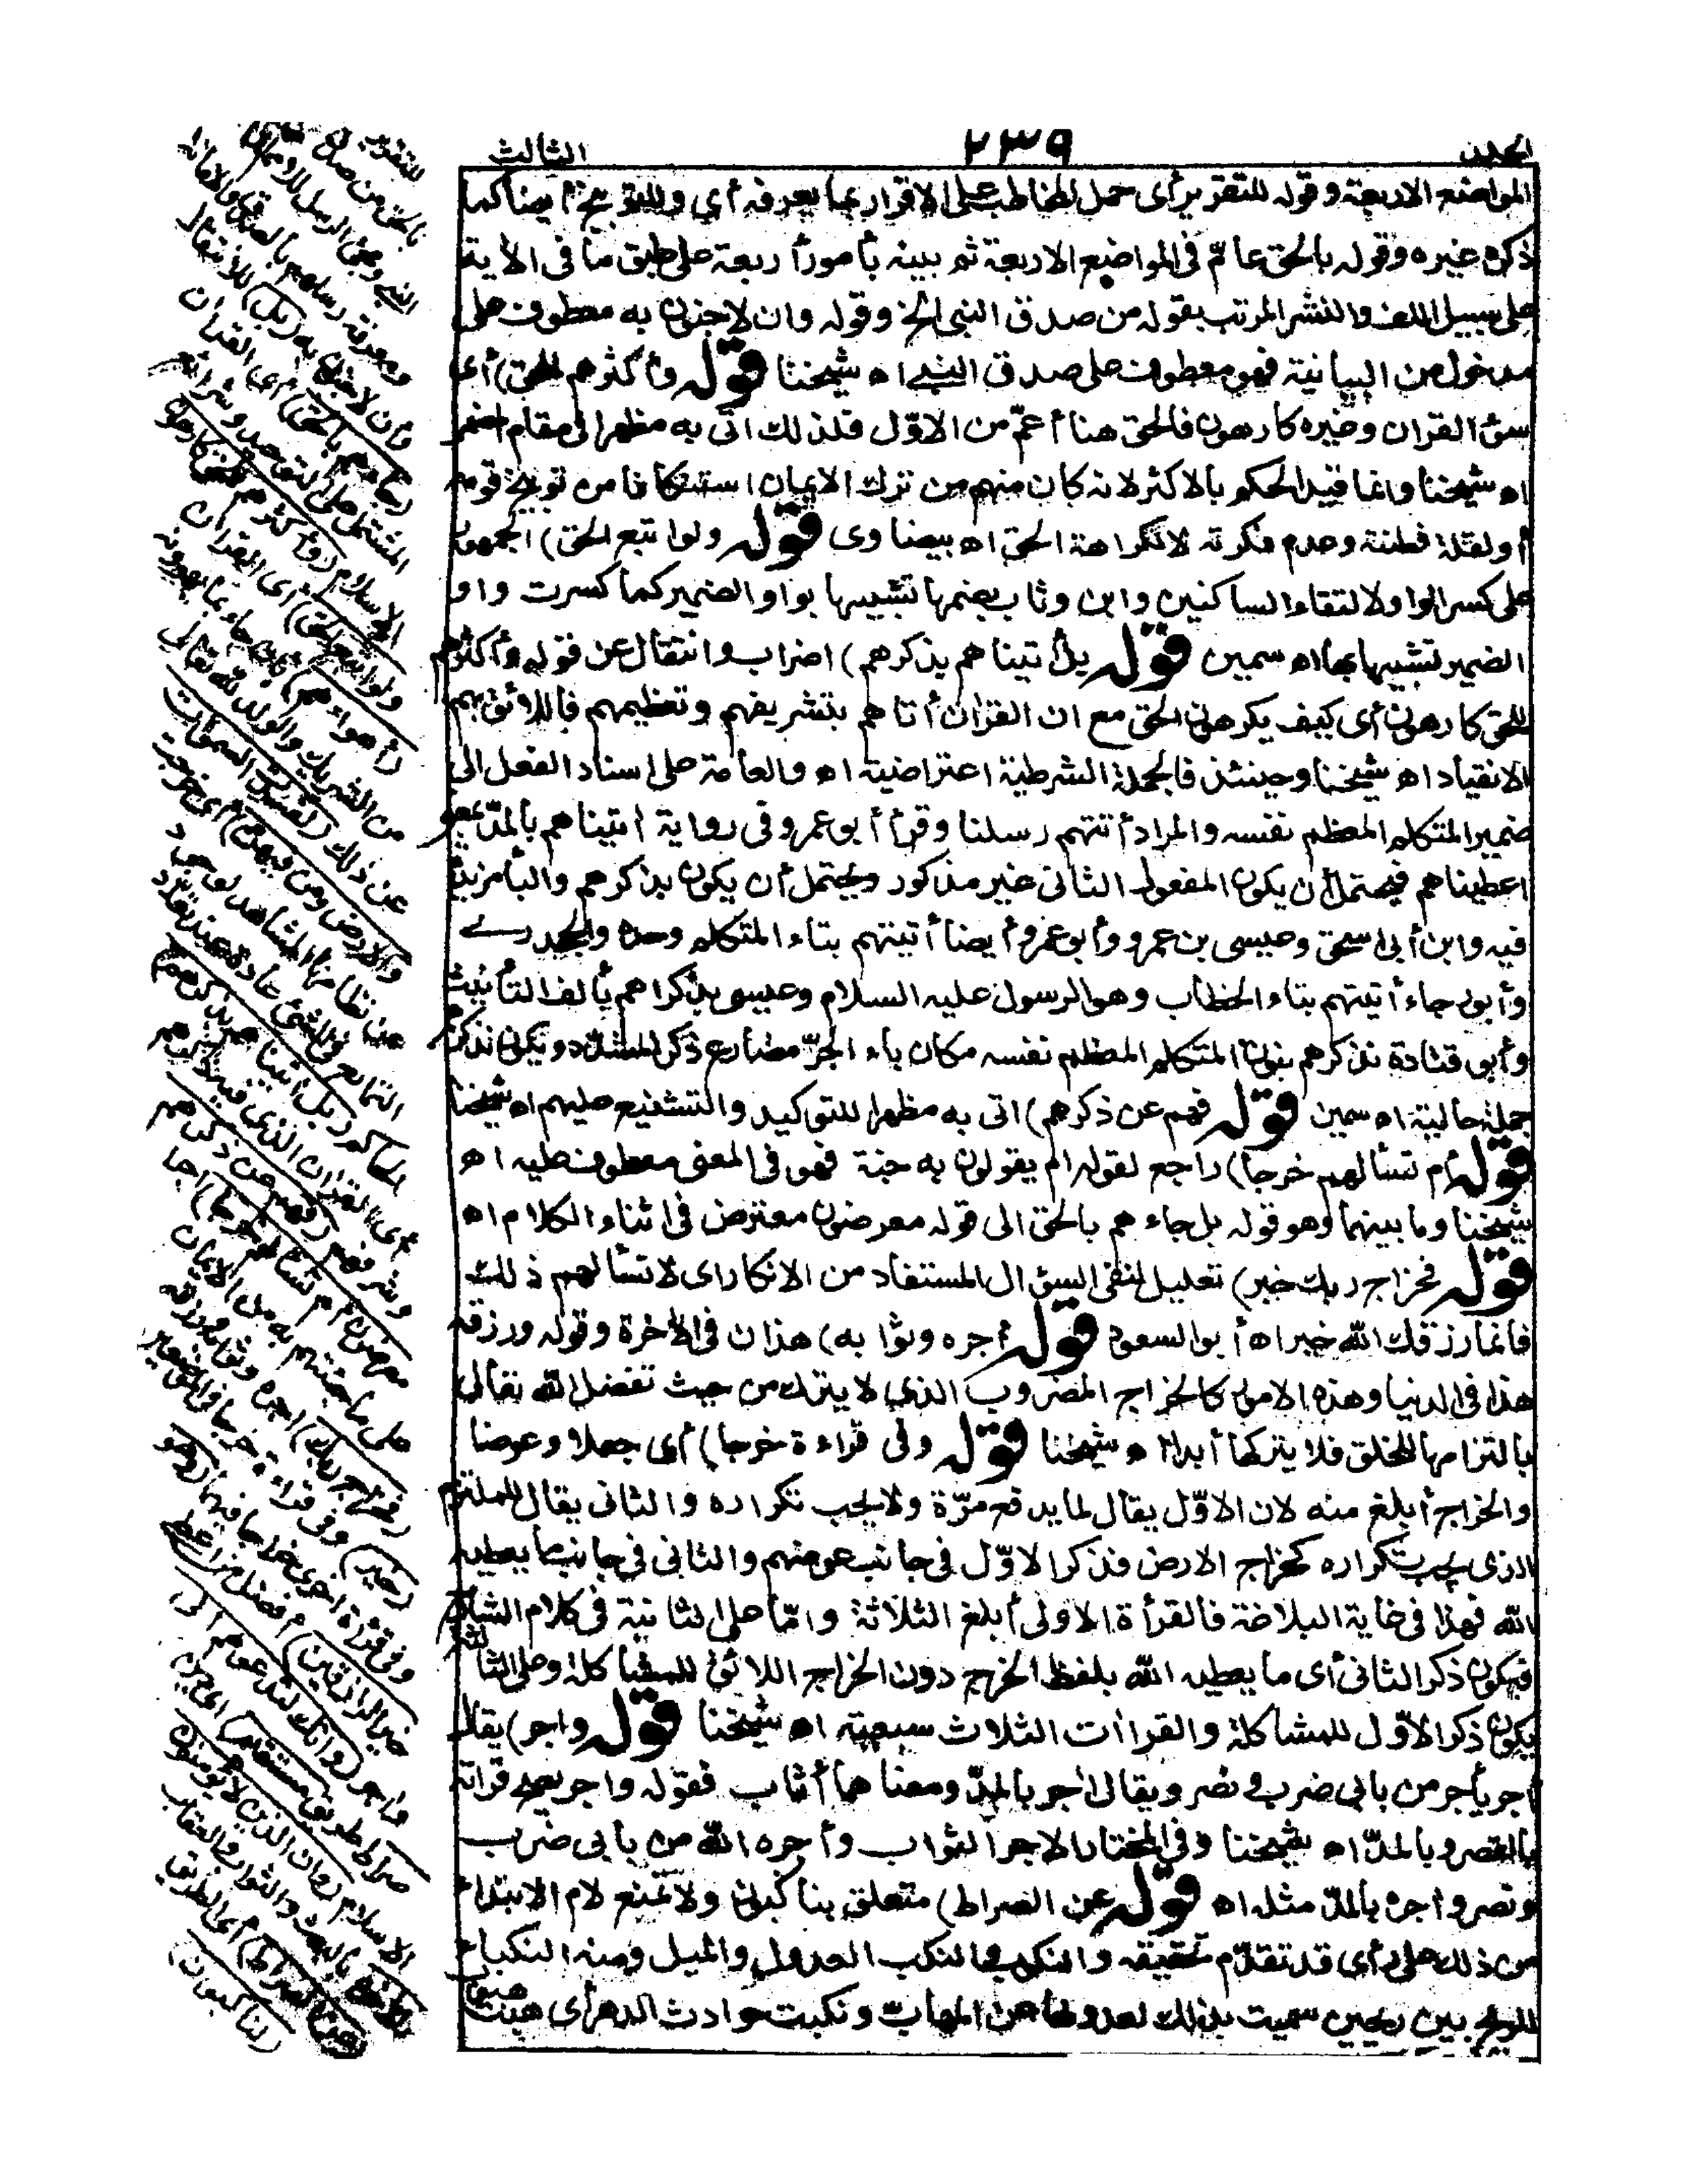 المجلد
٢٣٩
الثالث
المواضع الاربعة وقوله للتقرير أى حمل المخاطب على الاقرار بما يعرفه أي وللتوبيخ أيضا كما
ذكره غيره وقوله بالحق عامّ فى المواضع الاربعة ثم بينه بأمور أربعة على طبق ما فى الأية
على سبيل اللف والنشر المرتب بقوله من صدق النبى الخ وقوله وان لاجنون به معطوف على
مدخول من البيانية فهو معطوف على صدق النبي اه شيخنا قوله وأكثرهم للحق) أى
سؤ القران وغيره كارهون فالحق هنا أعمّ من الاوّل فلذلك اتى به مظهرا فى مقام اضمر
اه شيخنا وانما قيد الحكم بالاكثر لانه كان منهم من ترك الايمان استنكافا من توبيخ قومه
أولقلة فطنته وعدم فكرته لالكراهة الحق اه بيضاوى قوله ولواتبع الحق) الجمهور
على كسر الواو لالتقاء الساكنين وابن وثاب بضمها تشبيها بواو الضمير كما كسرت واو
الضمير تشبيها بها اه سمين قوله بل أتيناهم بذكرهم) اضراب وانتقال عن قوله وأكثرهم
للحق كارهون أى كيف يكرهون الحق مع ان القران أتاهم بتشريفهم وتعظيمهم فاللائق بهم
الانقياد اه شيخنا وحينئذ فالجملة الشرطية اعتراضية اه والعامة على اسناد الفعل الى
ضمير المتكلم المعظم نفسه والمراد أتتهم رسلنا وقرأ أبو عمرو فى رواية أتيناهم بالمدّ بمعنى
اعطيناهم فيحتمل أن يكون المفعول الثانى غير مذكور ويحتمل أن يكون بذكرهم والبأ مزيدة
فيه وابن أبى اسحق وعيسى بن عمرو وأبوعمرو أيضا أتيتهم بتاء المتكلم وحده والجحدرى
وأبورجاء أتيتهم بتاء الخطاب وهو الرسول عليه السلام وعيسى بذكراهم بألف التأنيث
وأبو قتادة نذكرهم بنون المتكلم المعظم نفسه مكان باء الجرّ مضارع ذكر المشدّد ويكون نذكرهم
جملة حالية اه سمين قوله فهم عن ذكرهم) اتى به مظهرا للتوكيد والتشنيع عليهم اه شيخنا
قوله أم تسألهم خرجا) راجع لقوله ام يقولون به جنة فهو فى المعنى معطوف عليه اه
شيخنا وما بينهما وهو قوله بل جاءهم بالحق الى قوله معرضون معترض فى اثناء الكلام اه
قوله فخراج ربك خير) تعليل لنفى السؤال المستفاد من الانكار اى لا تسألهم ذلك
فانما رزقك الله خير اه أبوالسعود قوله أجره وثوابه) هذان فى الأخرة وقوله ورزقه
هذا فى الدنيا وهذه الامور كالخراج المضروب الذي لا يترك من حيث تفضل الله تعالى
بالتزامها للخلق فلا يتركها أبدا اه شيخنا قوله وفى قراءة خرجا) أى جعلا وعوضا
والخراج أبلغ منه لان الاوّل يقال لما يدفع مرّة ولايجب تكراره والثانى يقال للملتزم
الذى يجب تكراره كخراج الارض فذكر الاوّل فى جانب عوضهم والثانى فى جانب ما يعطيه
الله فهذا فى غاية البلاغة فالقرأة الاولى أبلغ الثلاثة وامّا على الثانية فى كلام الشارح
فيكون ذكر الثانى أى ما يعطيه الله بلفظ الخرج دون الخراج اللائق للمشاكلة وعلى الثالثة
يكون ذكر الاوّل للمشاكلة والقراأت الثلاث سبعية اه شيخنا قوله واجر) يقال
أجر يأجر من بابى ضرب ونصر ويقال أجر بالمدّ ومعناهما أثاب فقوله واجر يصح قرأته
بالقصر وبالمدّ اه شيخنا وفى المختار الاجر الثواب وأجره الله من بابى ضرب
ونصر واجره بالمدّ مثله اه قوله عن الصراط) متعلق بناكبون ولاتمنع لام الابتداء
من ذلك على رأى قد تقدّم تحقيقه والنكوب والنكب العدول والميل ومنه النكباء
للريح بين ريحين سميت بذلك لعدولها عن المهابّ ونكبت حوادث الدهر أى هبت
للتقرير
بالحق من صدق
النبي ومجئ الرسل للامم الماضية
ومعرفة رسولهم بالصدق والامانة
وأن لاجنون به (بل) للانتقال
(جاءهم بالحق) أى القرأن
المشتمل على التوحيد وشرائع
الاسلام (وأكثرهم للحق كارهون
ولواتبع الحق) أى القرأن
(أهواءهم) بأن جاء بما يهوونه
من الشريك والولد لله تعالى
عن ذلك (لفسدت السموات
والارض ومن فيهن) أى خرجت
عن نظامها المشاهد لوجود
التمانع فى الشئ عادة عند تعدد
الحاكم (بل أتيناهم بذكرهم)
أى القرأن الذى فيه ذكرهم
وشرفهم (فهم عن ذكرهم
معرضون أم تسألهم خرجا) اجرا
على ما جئتهم به من الايمان
(فخراج ربك) اجره وثوابه ورزقه
(خير) وفى قراءة خرجا فى الموضعين
وفى قراءة اخرى خراجا فيهما (وهو
خير الرازقين) أفضل من أعطى
وأجر (وانك لتدعوهم الى
صراط) طريق (مستقيم) اى دين
الاسلام (وان الذين لايؤمنون
بالأخرة) بالبعث والثواب والعقاب
(عن الصراط) أى الطريق
(لناكبون)